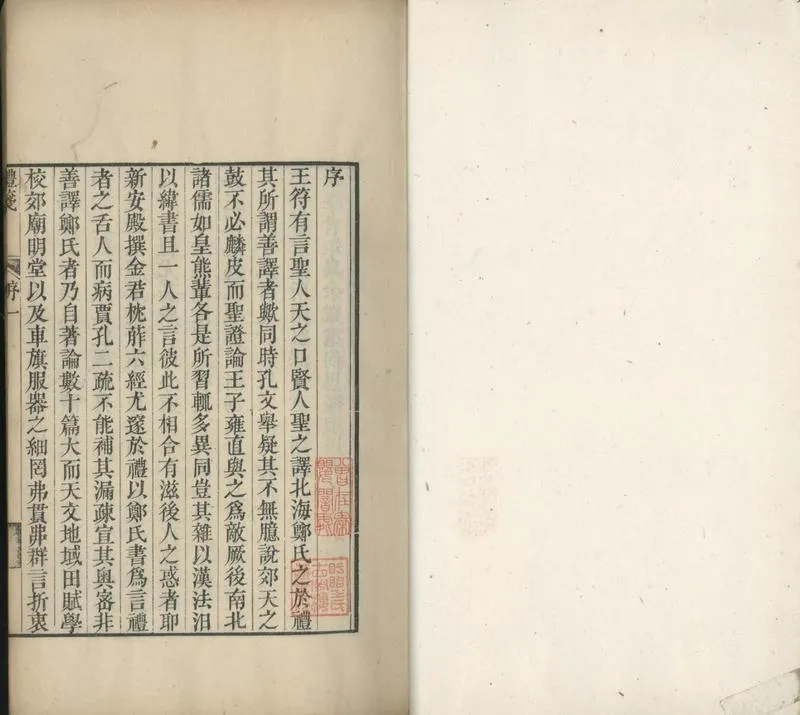 序
王符有言聖人天之口賢人聖之譯北海鄭氏之於禮
其所謂善譯者歟同時孔文舉疑其不無臆說郊天之
鼓不必麟皮而聖證論王子雍直與之爲敵厥後南北
諸儒如皇熊輩各是所習輒多異同豈其雜以漢法汨
以緯書且一人之言彼此不相合有滋後人之惑者耶
新安殿撰金君枕葄六經尤邃於禮以鄭氏書爲言禮
者之舌人而病賈孔二疏不能補其漏疎宣其奥宻非
善譯鄭氏者乃自著論數十篇大而天文地域田賦學
校郊廟明堂以及車旗服器之細罔弗貫弗群言折衷
禮箋
序
一